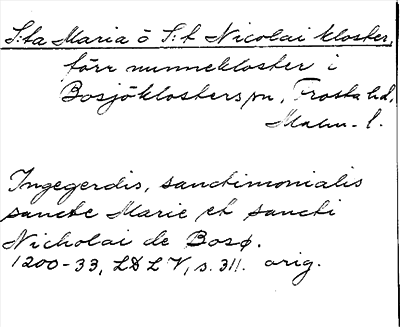 S:ta Maria o S:t Nicolai kloster,
förr nunnekloster i
Bosjöklosters sn, Frosta hd,
Malm. l.
Ingegerdis, sanctimonialis
sancte Marie et sancti
Nicholai de Bosø.
1200-33, LDLV, s. 311. orig.